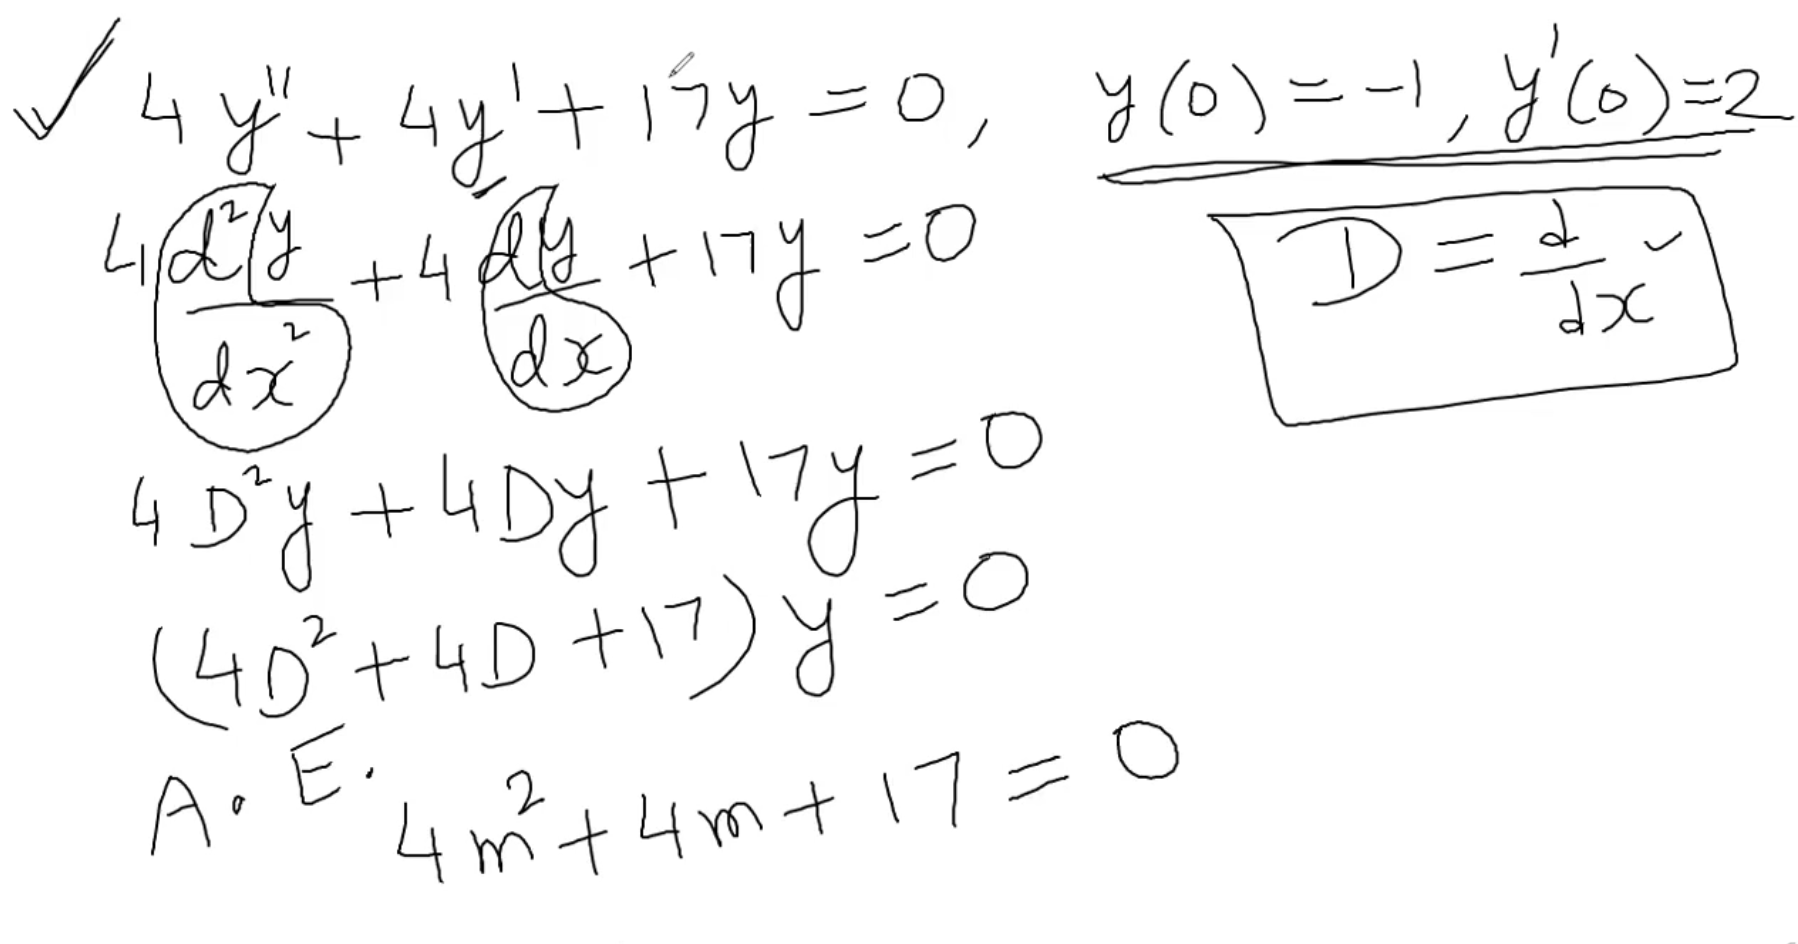 4y'' + 4y' + 17y = 0, y(0) = -1, y'(0) = 2
4 d²y/dx² + 4 dy/dx + 17y = 0
D = d/dx
4D²y + 4Dy + 17y = 0
(4D² + 4D + 17) y = 0
A. E. 4m² + 4m + 17 = 0